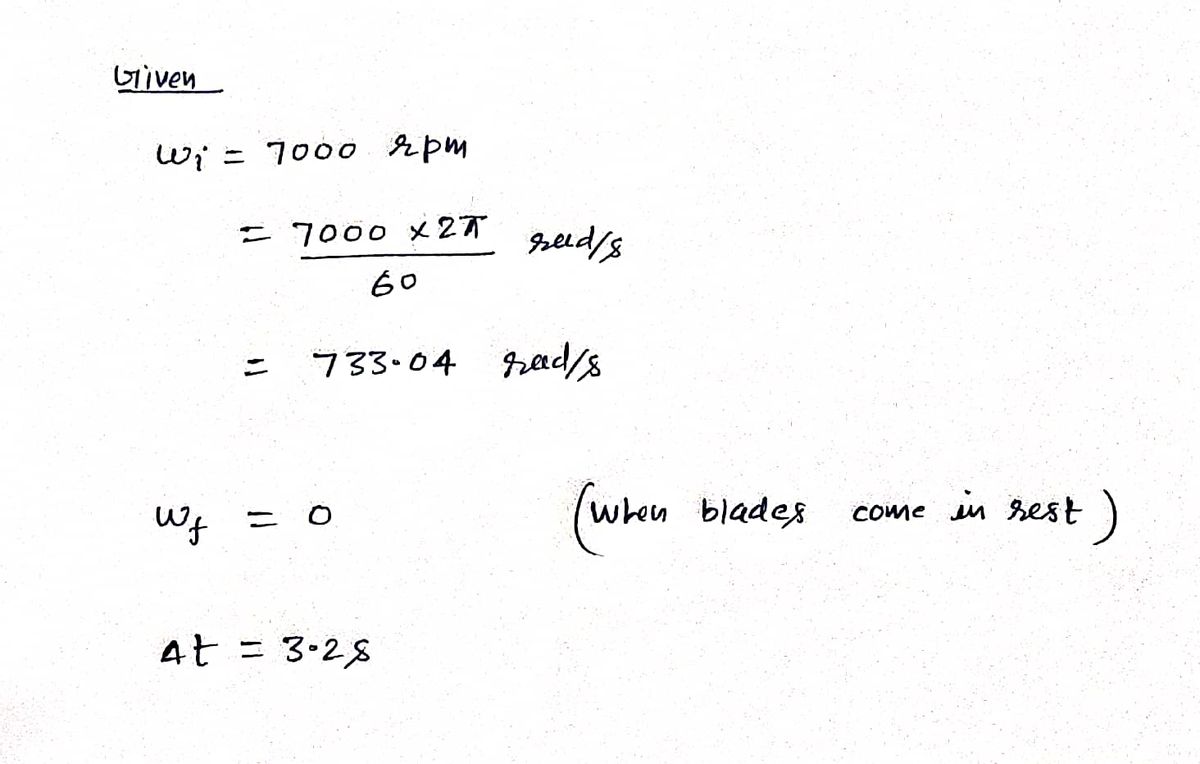 Given
ωi = 7000 rpm
= 7000 × 2π / 60 rad/s
= 733.04 rad/s
ωf = 0 (when blades come in rest)
Δt = 3.2s